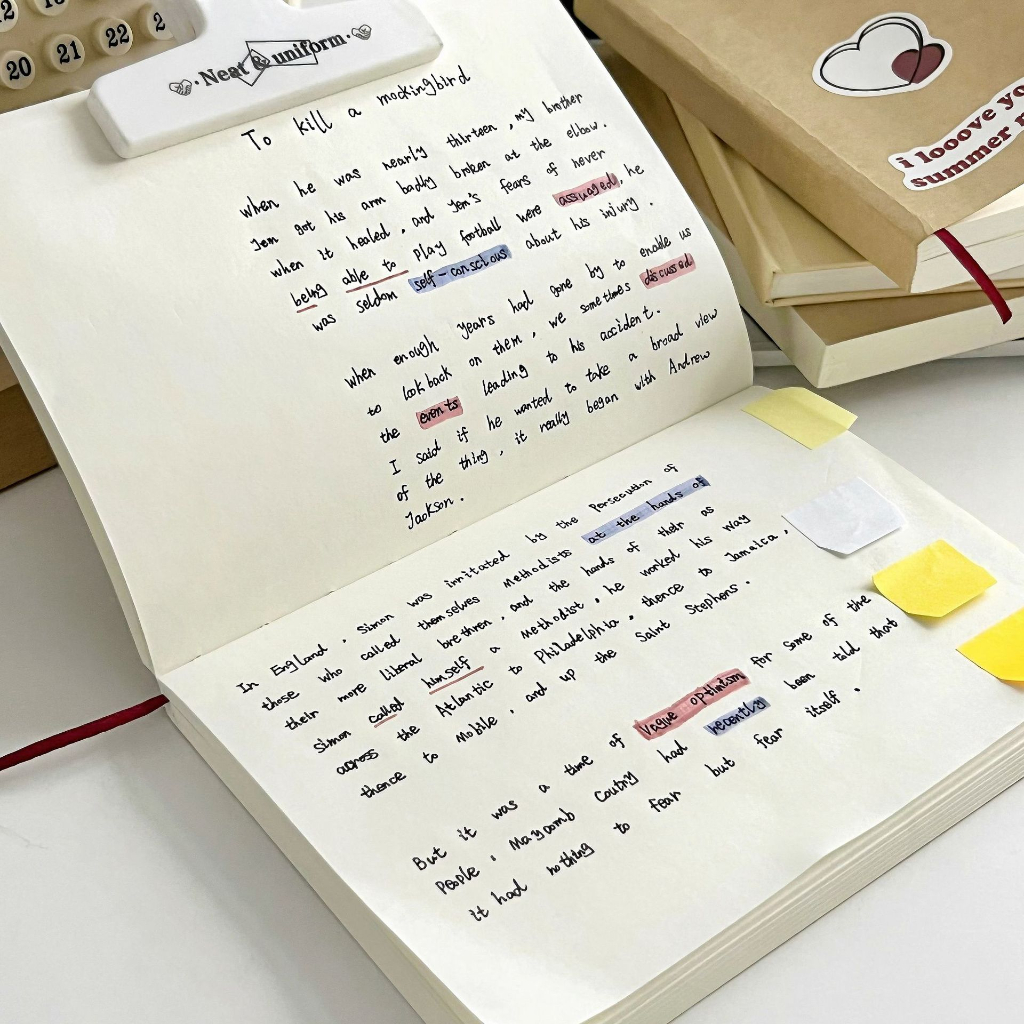 12
13
20
21
22
2
Neat & uniform
To kill a mockingbird
when he was nearly thirteen , my brother
Jem got his arm badly broken at the elbow.
when it healed , and Jem's fears of never
being able to play football were assuaged, he
was seldom self-conscious about his injury .
when enough years had gone by to enable us
to look back on them , we sometimes discussed
the events leading to his accident .
I said if he wanted to take a broad view
of the thing , it really began with Andrew
Jackson .
In England , Simon was irritated by the persecution of
those who called themselves Methodists at the hands of
their more liberal brethren , and the hands of their as
Simon called himself a Methodist , he worked his way
across the Atlantic to Philadelphia , thence to Jamaica ,
thence to Mobile , and up the Saint Stephens .
But it was a time of vague optimism for some of the
people , Maycomb Coutny had recently been told that
it had nothing to fear but fear itself .
i looove yo
summer